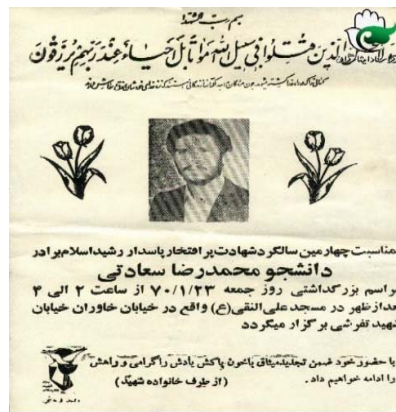 الذین قتلوا فی سبیل الله امواتا بل احیاء عند ربهم یرزقون
بمناسبت چهارمین سالگرد شهادت پر افتخار پاسدار رشید اسلام برادر
دانشجو محمدرضا سعادتی
مراسم بزرگداشتی روز جمعه ۷۰/۱/۲۳ از ساعت ۲ الی ۴
بعدازظهر در مسجد علی‌النقی (ع) واقع در خیابان خاوران خیابان
شهید تفرشی برگزار میگردد
با حضور خود ضمن تجدید میثاق باخون پاکش یادش را گرامی و راهش
را ادامه خواهیم داد . (از طرف خانواده شهید)